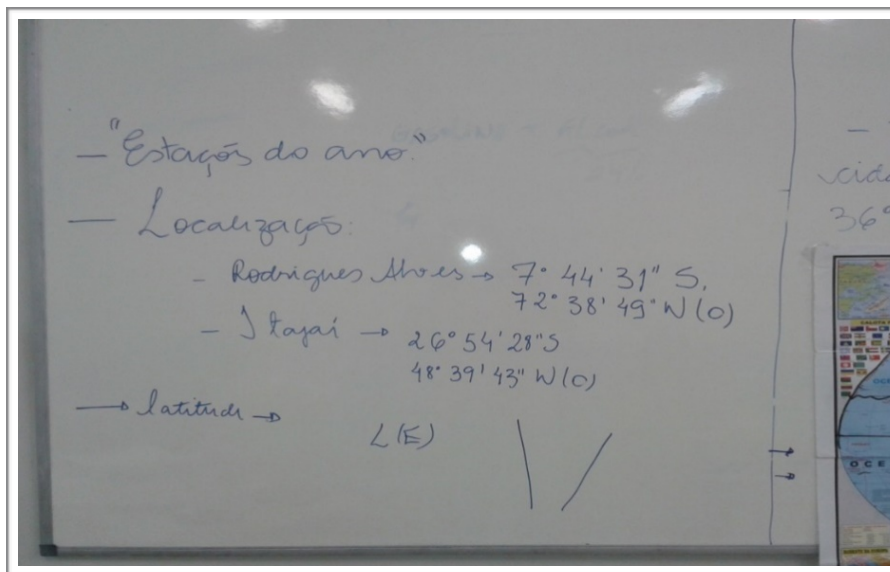 — "Estações do ano."
— Localização:
- Rodrigues Alves → 7° 44' 31" S.
72° 38' 49" W (O)
- Itajaí → 26° 54' 28" S
48° 39' 43" W (O)
→ latitude →
L(E)
—
cida
36°
OCE